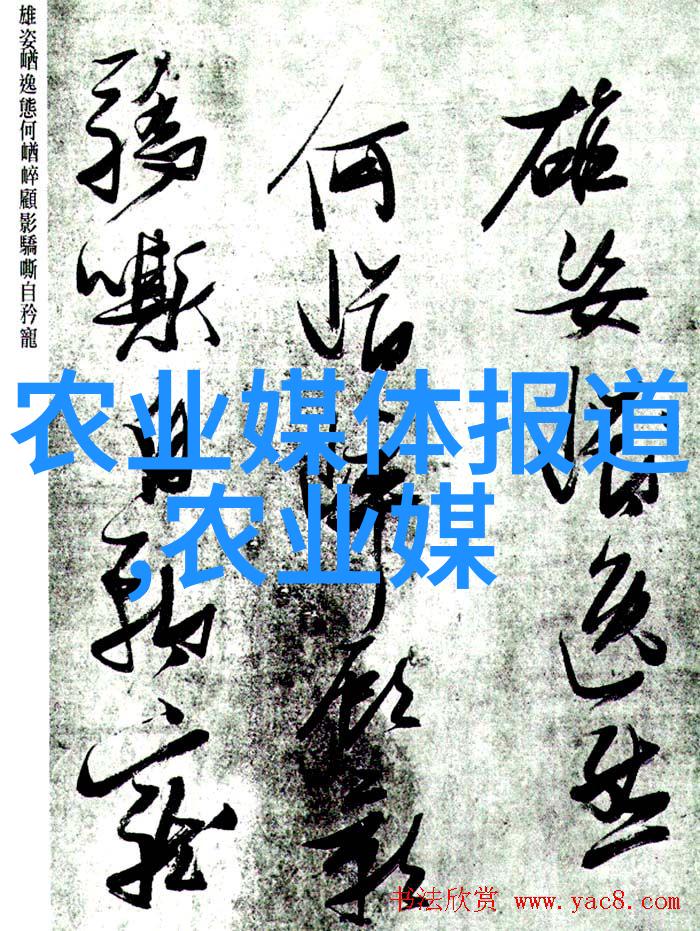 雄姿崷逸態
何崷崪顧影
驕嘶自矜寵
雄姿崷逸態何崷崪顧影驕嘶自矜寵
农业媒体报道
,农业媒
书法欣赏 www.yac8.com